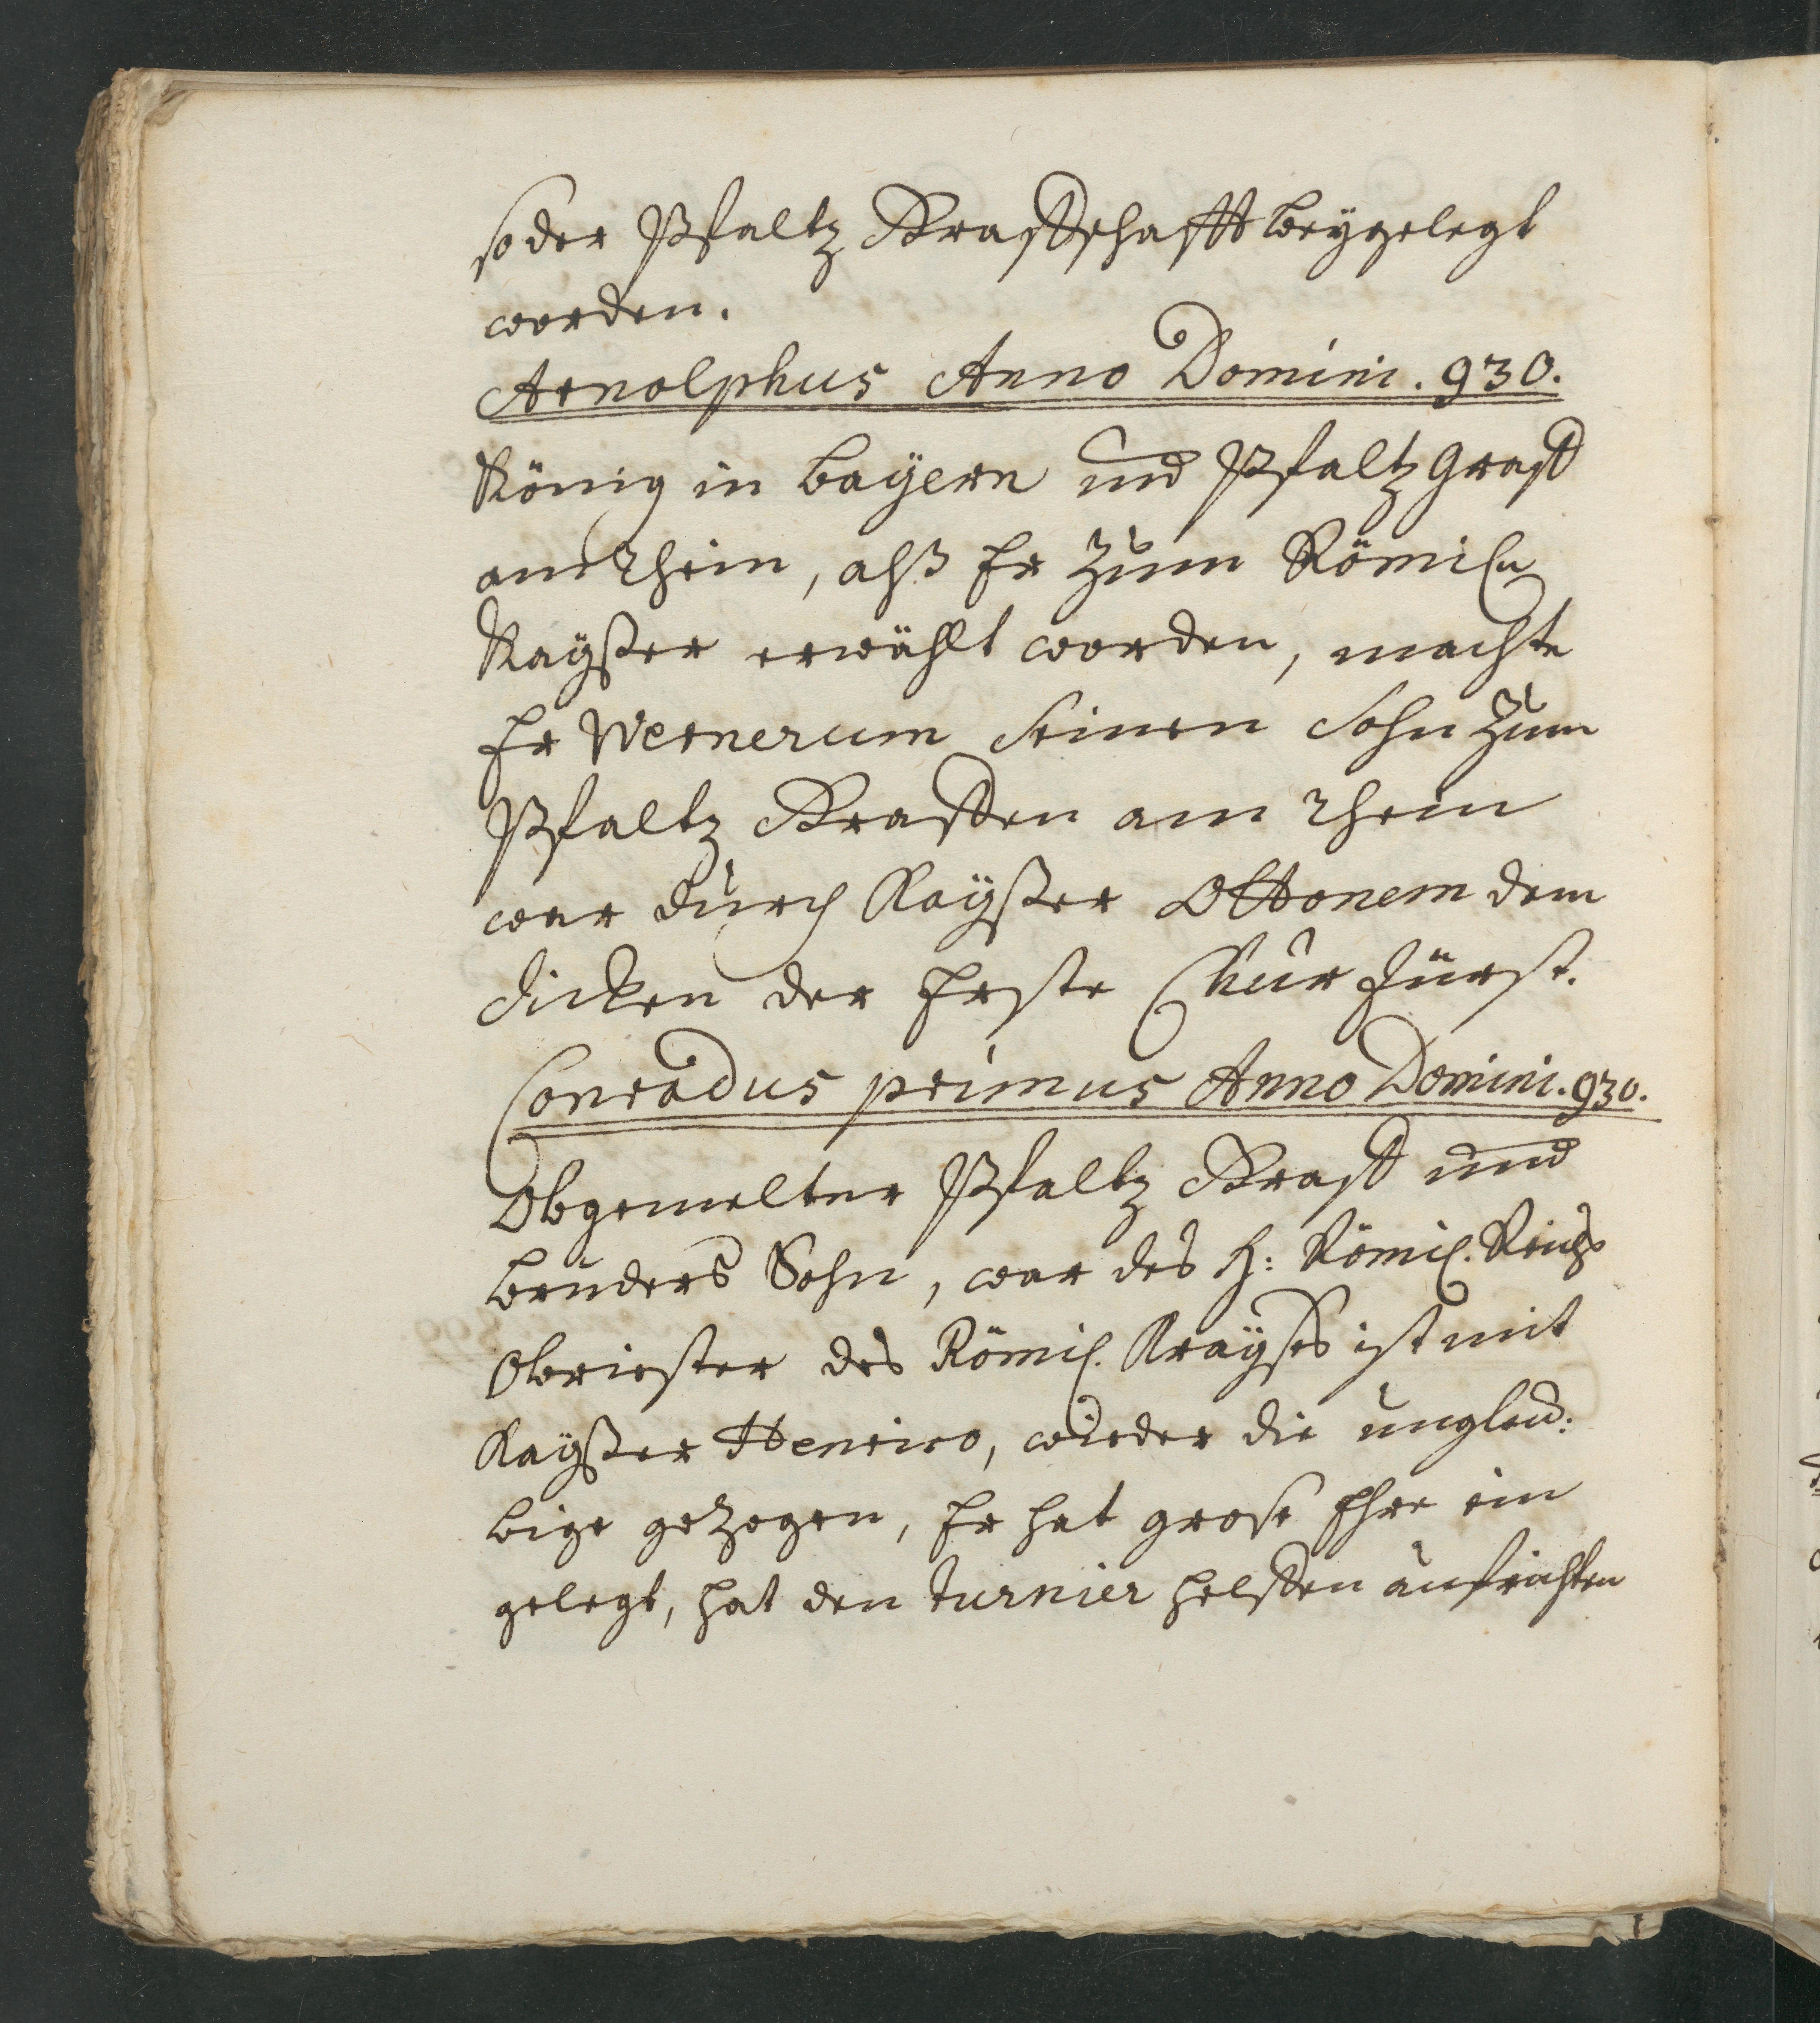 so der Pfaltz Graffschafft beygelegt
worden.
Arnolphus Anno Domini. 930.
König in bayern und Pfaltz Graff
am Rhein, alß Er Zum Römisch
Kayßer erwählt worden, machte
Er Wernerum seinen Sohn Zum
Pfaltz Graffen am Rhein
war durch Kayßer Ottonem dem
dicken der Erste Chur Fürst.
Conradus primus Anno Domini. 930.
Obgemelter Pfaltz Graff und
bruders Sohn, war des H: Römisch. Reichs
Obriester des Römisch. Krayses ist mit
Kayßer Henrico, wieder die unglau:
bige gezogen, Er hat grose Ehre ein
gelegt, hat den turnier helffen aufrichten